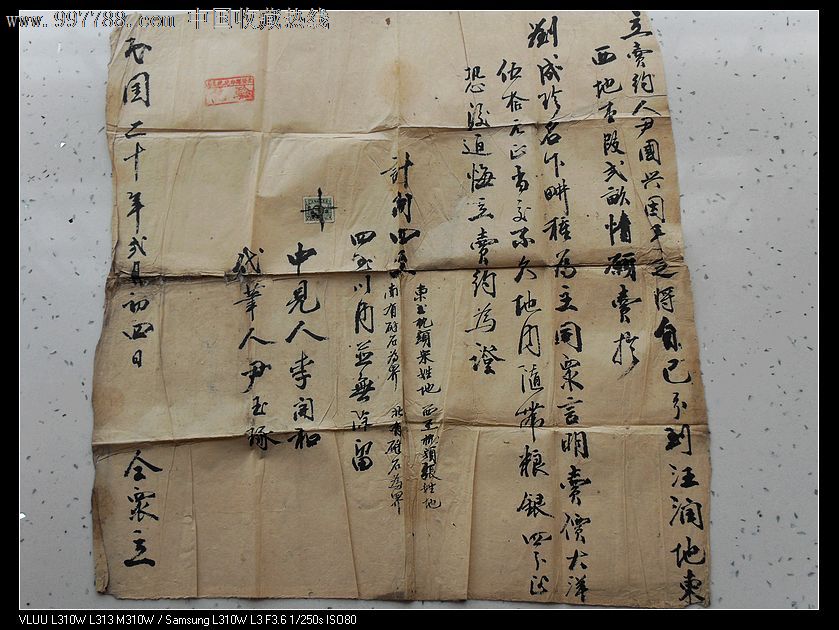 www.997788.com 中国收藏热线
立賣約人尹國興因不足將自己分到汪澗地東
西地壹段弍畝情願賣於
劉成珍名下畊種為主同衆言明賣價大洋
伍拾元正當交不欠地內隨帶粮銀四分正
恐後追悔立賣約為證
計開四至
東至 頭宋姓地
西至 頭張姓地
南有碎石為界
北有碎石為界
四至以內並無除留
中見人李開和
代筆人尹玉琢
民国二十年弍月初四日 仝衆立
VLUU L310W L313 M310W / Samsung L310W L3 F3.6 1/250s ISO80